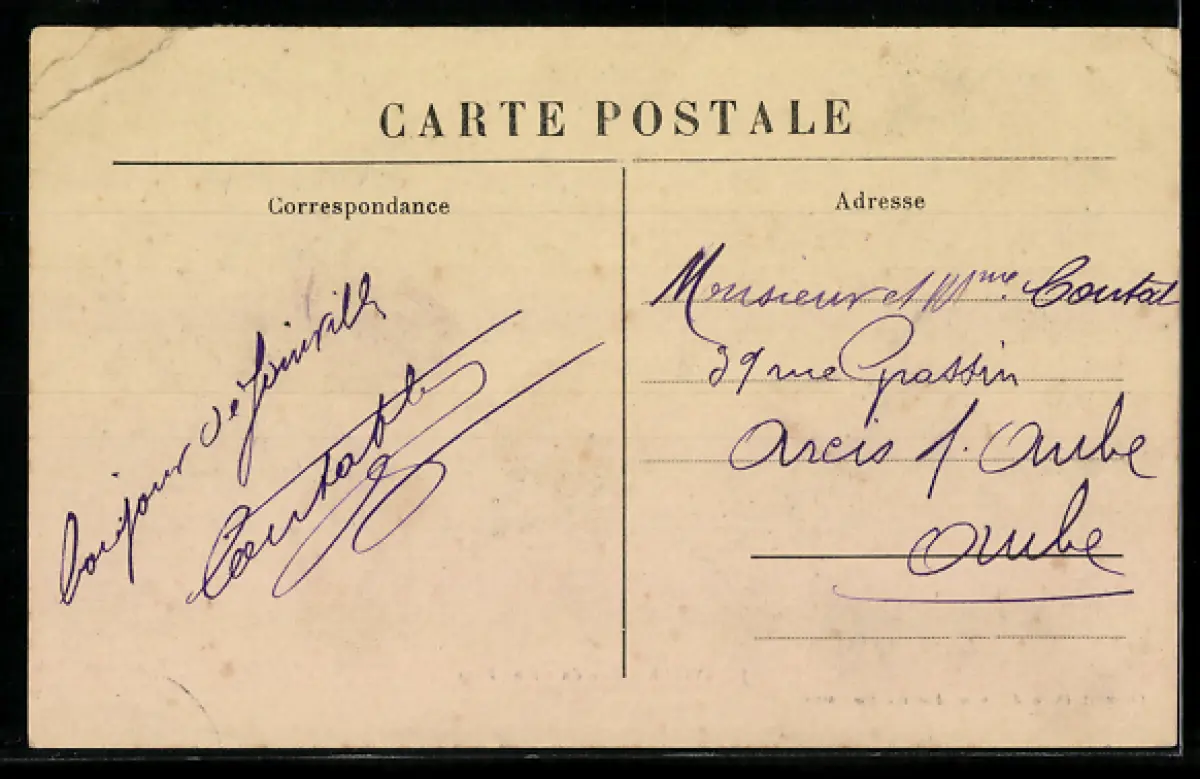 CARTE POSTALE
Correspondance
bonjour de Joinville
Adresse
Monsieur et Mme Contat
39 rue Grassin
Arcis s. Aube
Aube